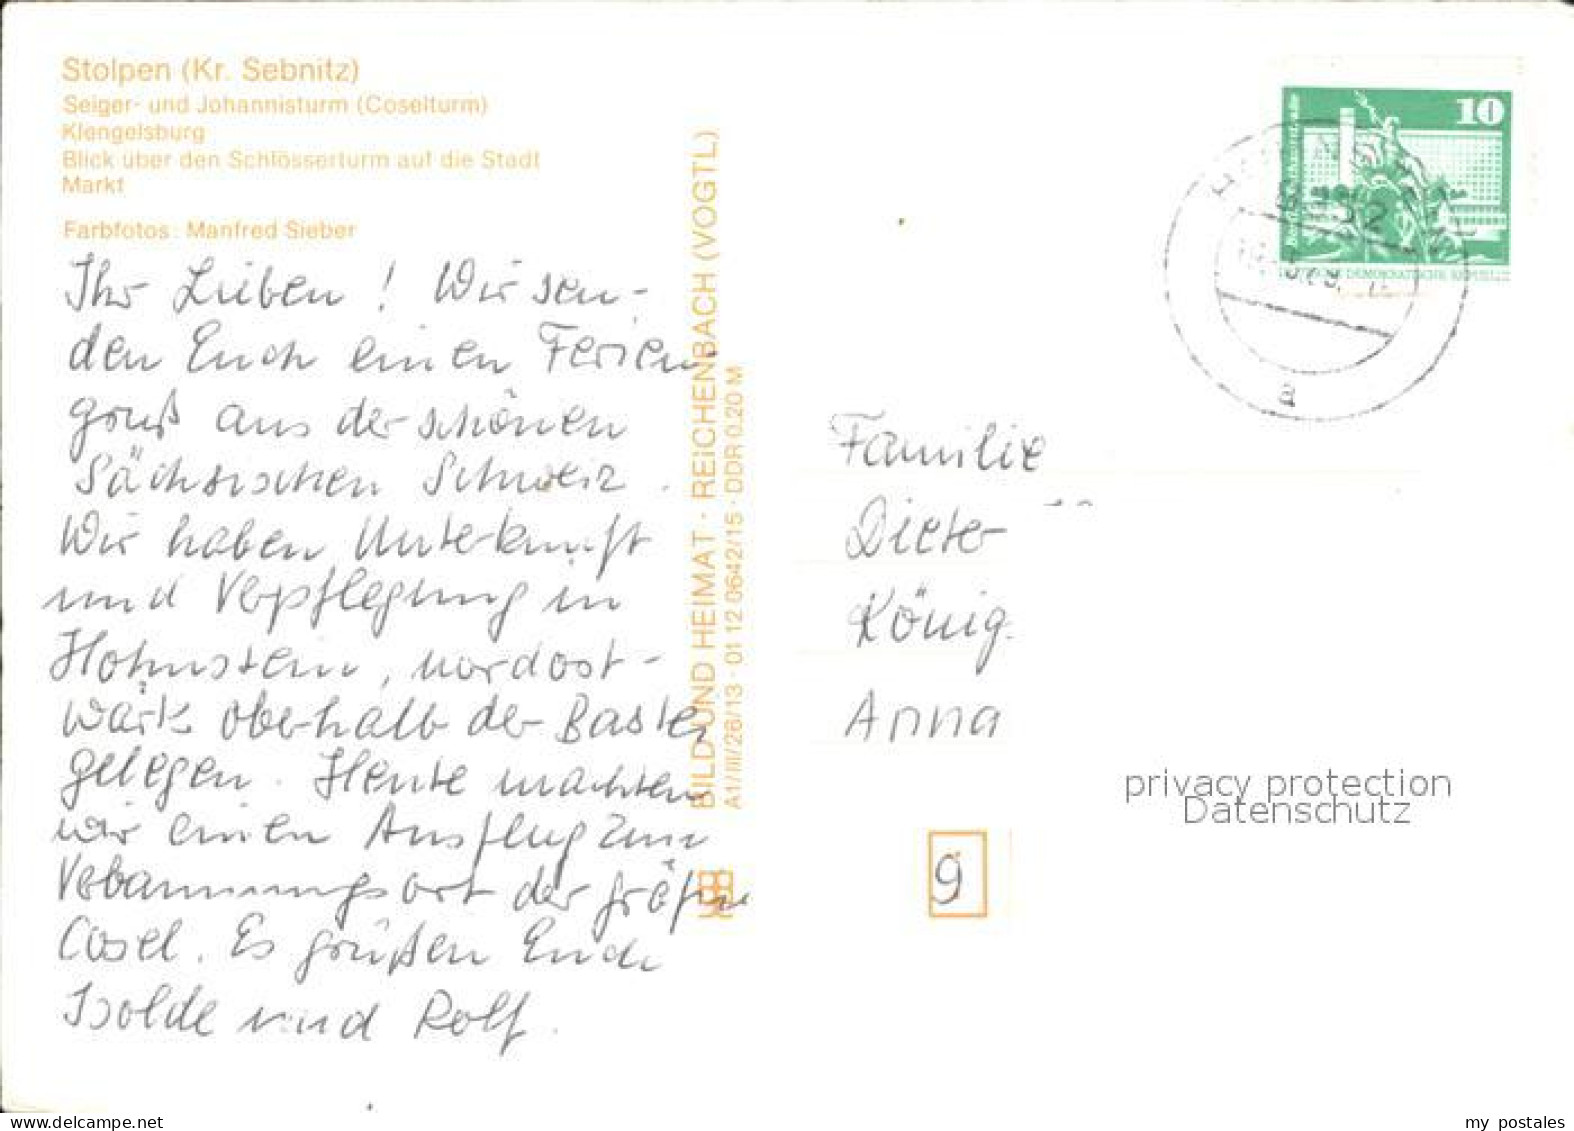 Stolpen (Kr. Sebnitz)
Seiger- und Johannisturm (Coselturm)
Klengelsburg
Blick über den Schlösserturm auf die Stadt
Markt
Farbfotos: Manfred Sieber
Ihr Lieben! Wir sen-
den Euch einen Ferien
gruß aus der schönen
Sächsischen Schweiz.
Wir haben Unterkunft
und Verpflegung in
Hohnstein, nordost-
wärts oberhalb der Bastei
gelegen. Heute machten
wir einen Ausflug zum
Verbannungsort der gräfin
Cosel. Es grüßen Euch
Isolde und Rolf.
BILD UND HEIMAT · REICHENBACH (VOGTL)
A1/III/26/13 · 01 12 0642/15 · DDR 0,20 M
10
DEMOKRATISCHE REPUBLIK
a
Familie
Dieter
König
Anna
privacy protection
Datenschutz
9
my postales